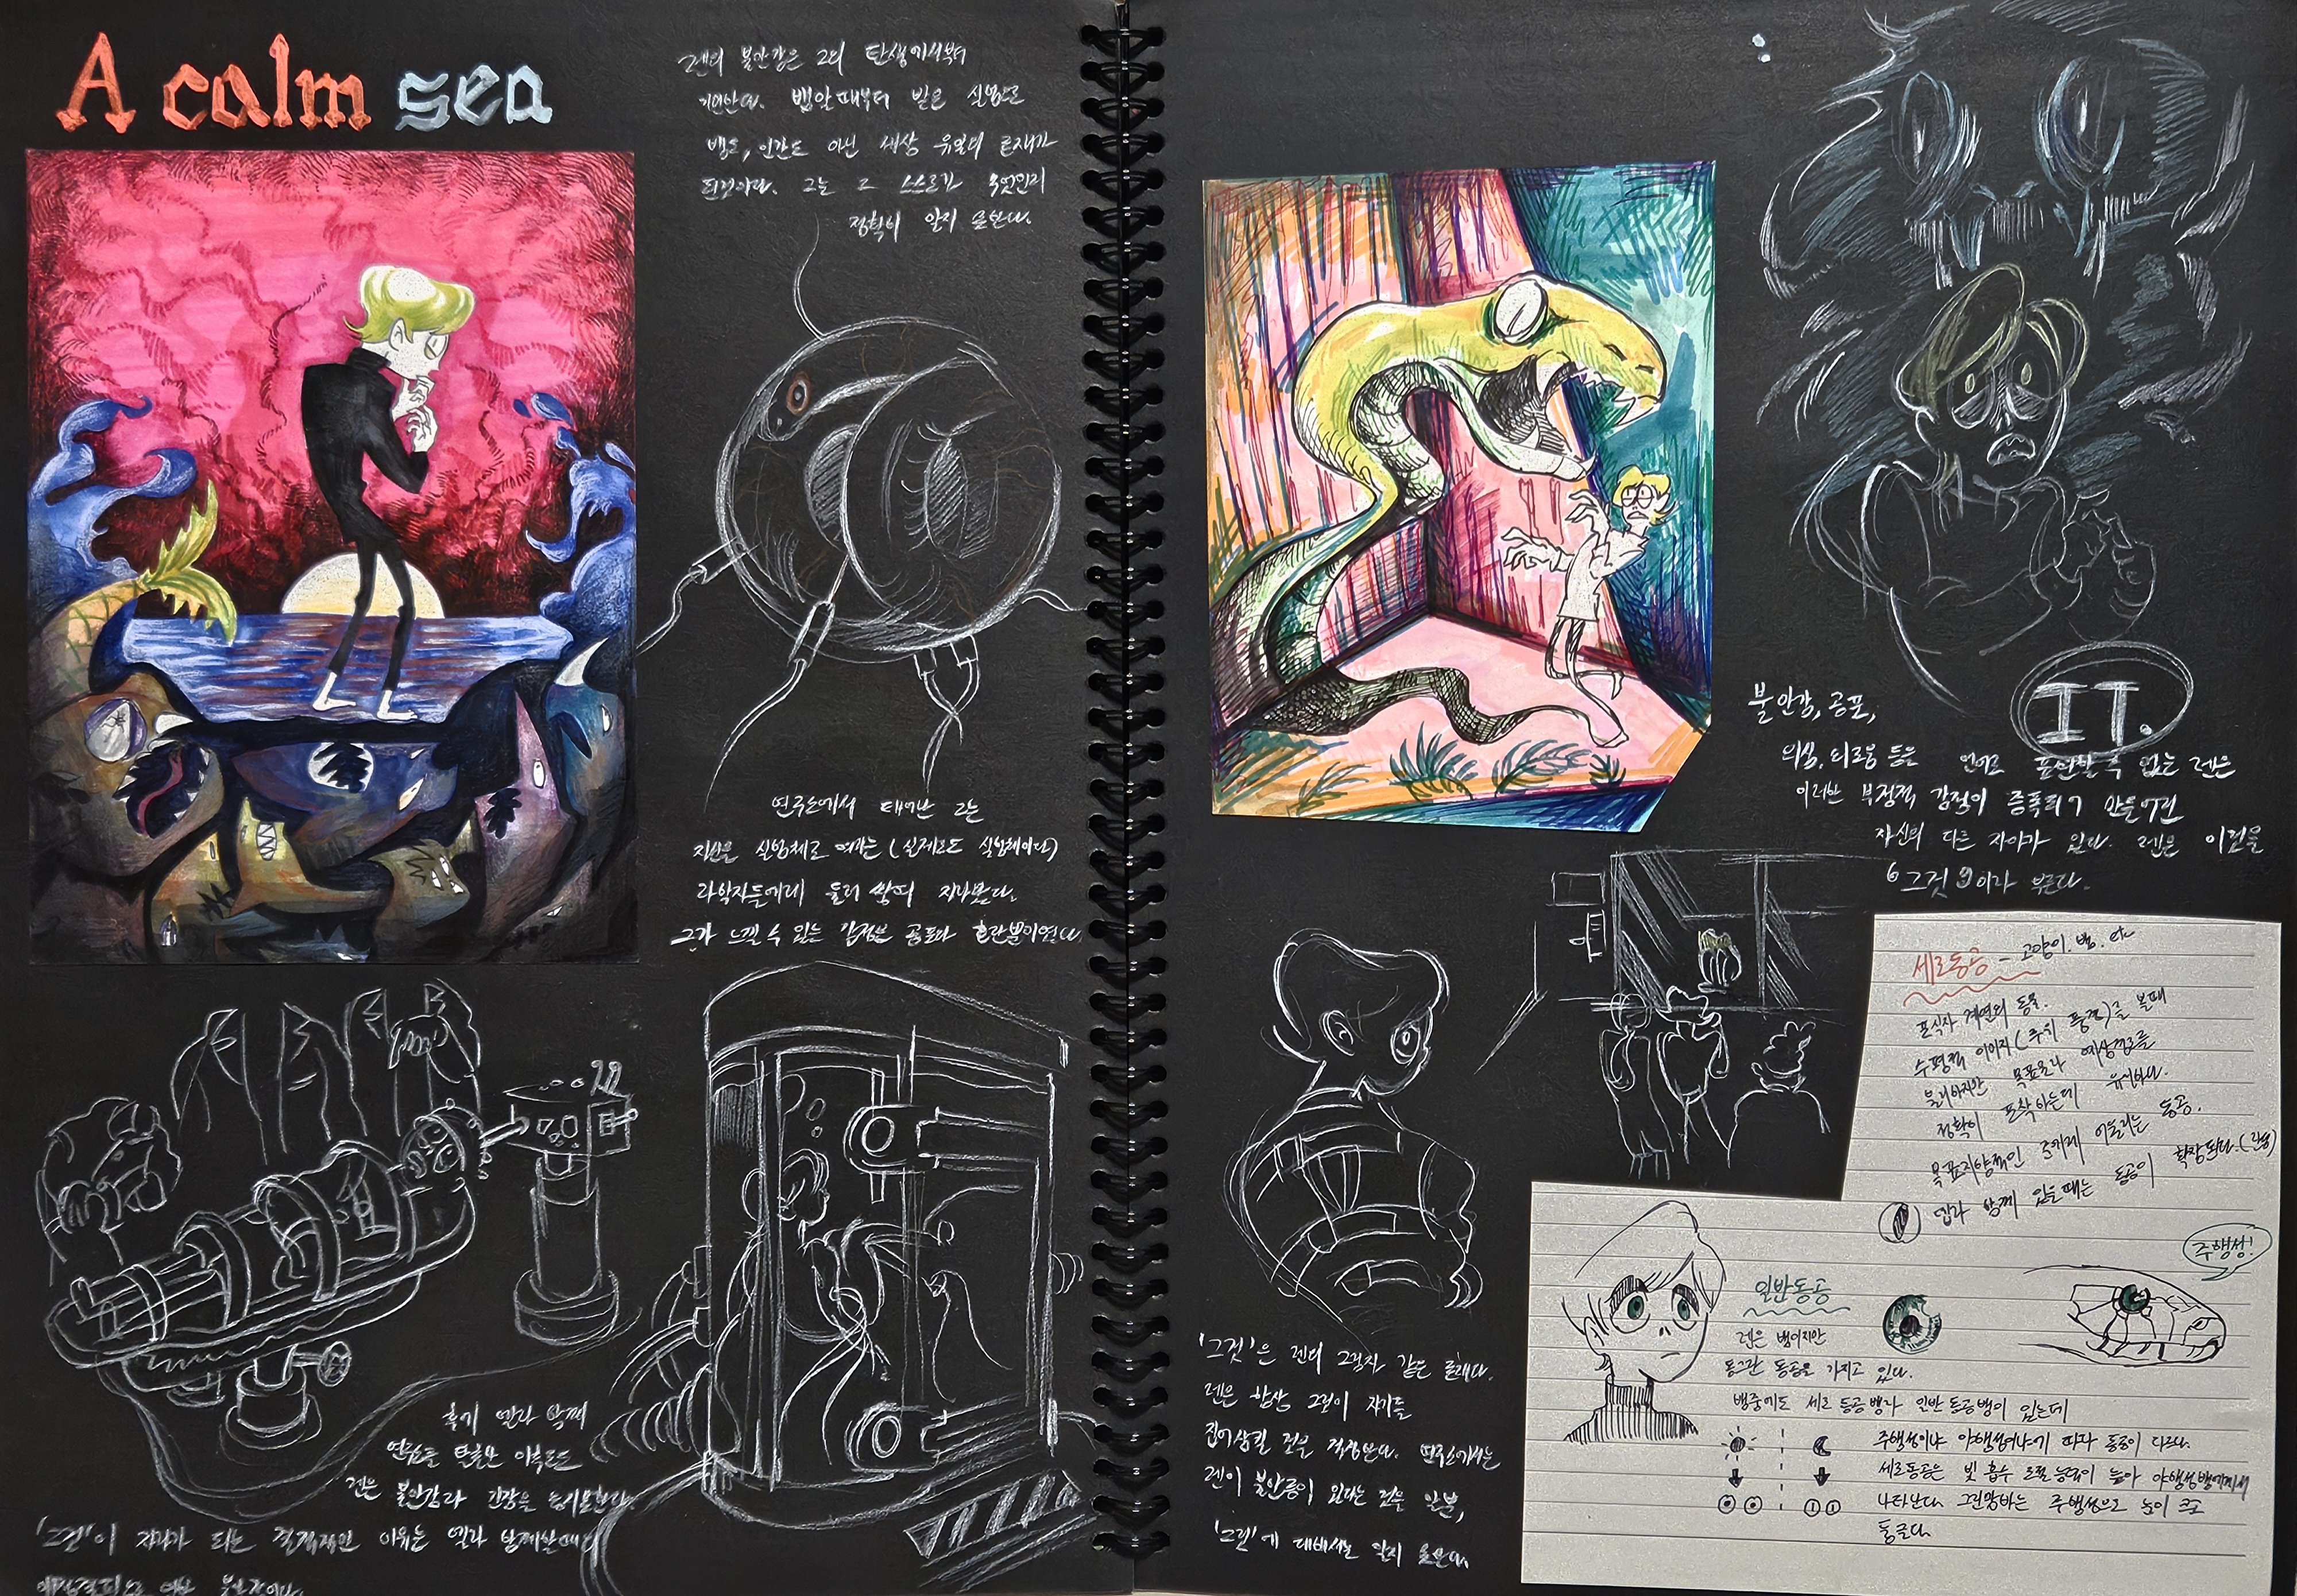 A calm sea
렌의 불안감은 그의 탄생에서부터
기인한다. 뱀알때부터 받은 실험으로
뱀도, 인간도 아닌 세상 유일의 존재가
된것이다. 그는 그 스스로가 무엇인지
정확히 알지 못한다.
연구소에서 태어난 그는
자신을 실험체로 여기는 (실제로도 실험체이다)
과학자들에게 둘러 쌓여 자라왔다.
그가 느낄 수 있는 감정은 공포와 혼란뿐이였다.
후기 엘라와 함께
연구소를 탈출한 이후로도
렌은 불안감과 긴장을 늦추지 못한다.
'그것'이 자라가 되는 결정적인 이유는 엘라와 함께할때
IT.
불안감, 공포,
의심, 외로움 등을 언어로 표현할 수 없는 렌은
이러한 부정적 감정이 증폭되기 만들어진
자신의 다른 자아가 있다. 렌은 이것을
'그것'이라 부른다.
'그것'은 렌의 그림자 같은 존재다.
렌은 항상 그것이 자기를
집어삼킬 것을 걱정한다. 연구소에서는
렌이 불안증이 있다는 것을 알뿐,
'그것'에 대해서는 알지 못한다.
세로동공 - 고양이, 뱀, 여우
포식자 계열의 동물.
수평적 이미지 (주위 풍경)를 볼때
불리하지만 목표물과 예상경로를
정확히 포착하는데 유리하다.
목표지향적인 루카에게 어울리는 동공.
엘라와 함께 있을때는 동공이 확장된다. (안정)
일반동공
주행성!
렌은 뱀이지만
동그란 동공을 가지고 있다.
뱀중에도 세로 동공뱀과 일반 동공뱀이 있는데
주행성이냐 야행성이냐에 따라 동공이 다르다.
세로동공은 빛 흡수 조절능력이 높아 야행성뱀에게서
나타난다. 그런 반면 주행성으로 눈이 크고
둥글다.